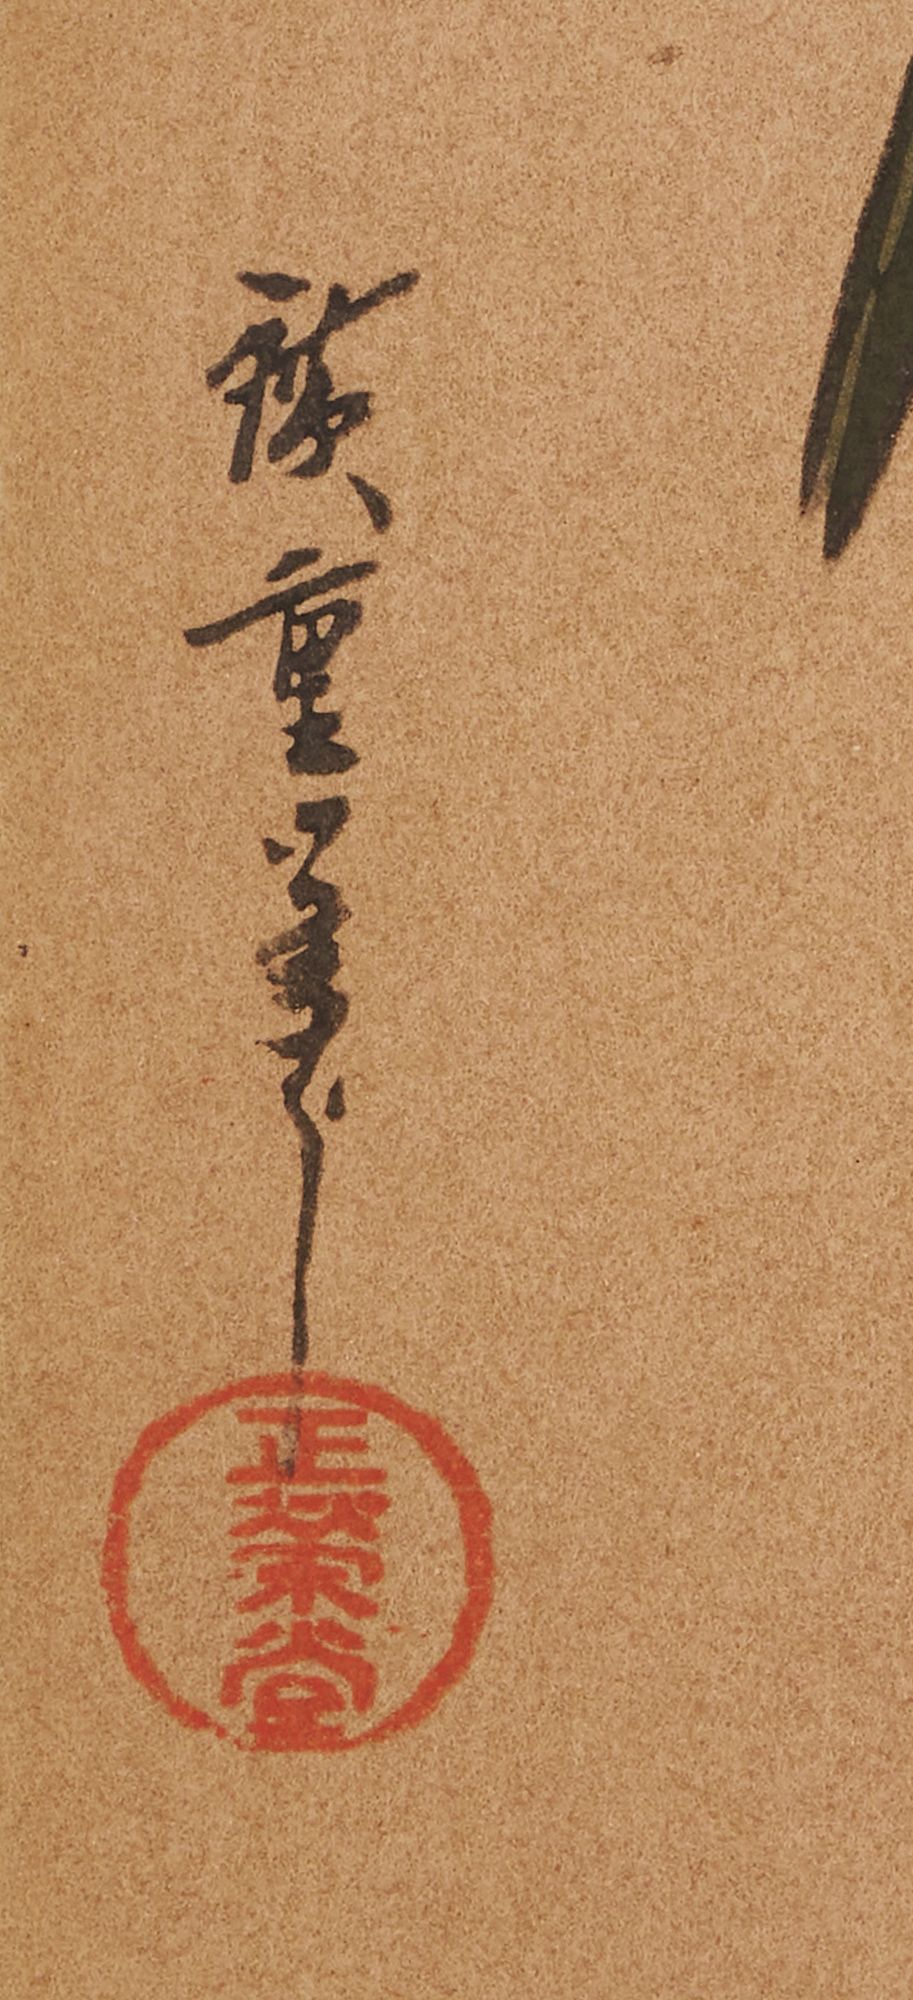 廣重筆
正榮堂